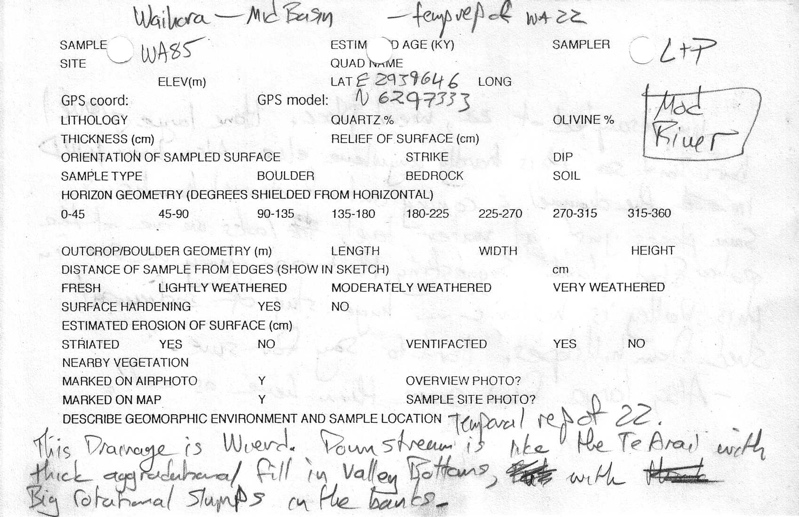 Waihora — Mid Basin — temp rep of WA22
SAMPLE WA85 ESTIM D AGE (KY) SAMPLER L+P
SITE QUAD NAME
ELEV(m) LAT E 2939646 LONG
GPS coord: GPS model: N 6297333
Mod
River
LITHOLOGY QUARTZ % OLIVINE %
THICKNESS (cm) RELIEF OF SURFACE (cm)
ORIENTATION OF SAMPLED SURFACE STRIKE DIP
SAMPLE TYPE BOULDER BEDROCK SOIL
HORIZON GEOMETRY (DEGREES SHIELDED FROM HORIZONTAL)
0-45 45-90 90-135 135-180 180-225 225-270 270-315 315-360
OUTCROP/BOULDER GEOMETRY (m) LENGTH WIDTH HEIGHT
DISTANCE OF SAMPLE FROM EDGES (SHOW IN SKETCH) cm
FRESH LIGHTLY WEATHERED MODERATELY WEATHERED VERY WEATHERED
SURFACE HARDENING YES NO
ESTIMATED EROSION OF SURFACE (cm)
STRIATED YES NO VENTIFACTED YES NO
NEARBY VEGETATION
MARKED ON AIRPHOTO Y OVERVIEW PHOTO?
MARKED ON MAP Y SAMPLE SITE PHOTO?
DESCRIBE GEOMORPHIC ENVIRONMENT AND SAMPLE LOCATION Temporal rep of 22.
This Drainage is Wierd. Downstream is like the Te Arai with
thick aggradational fill in Valley Bottoms, with
Big rotational Slumps on the banks-